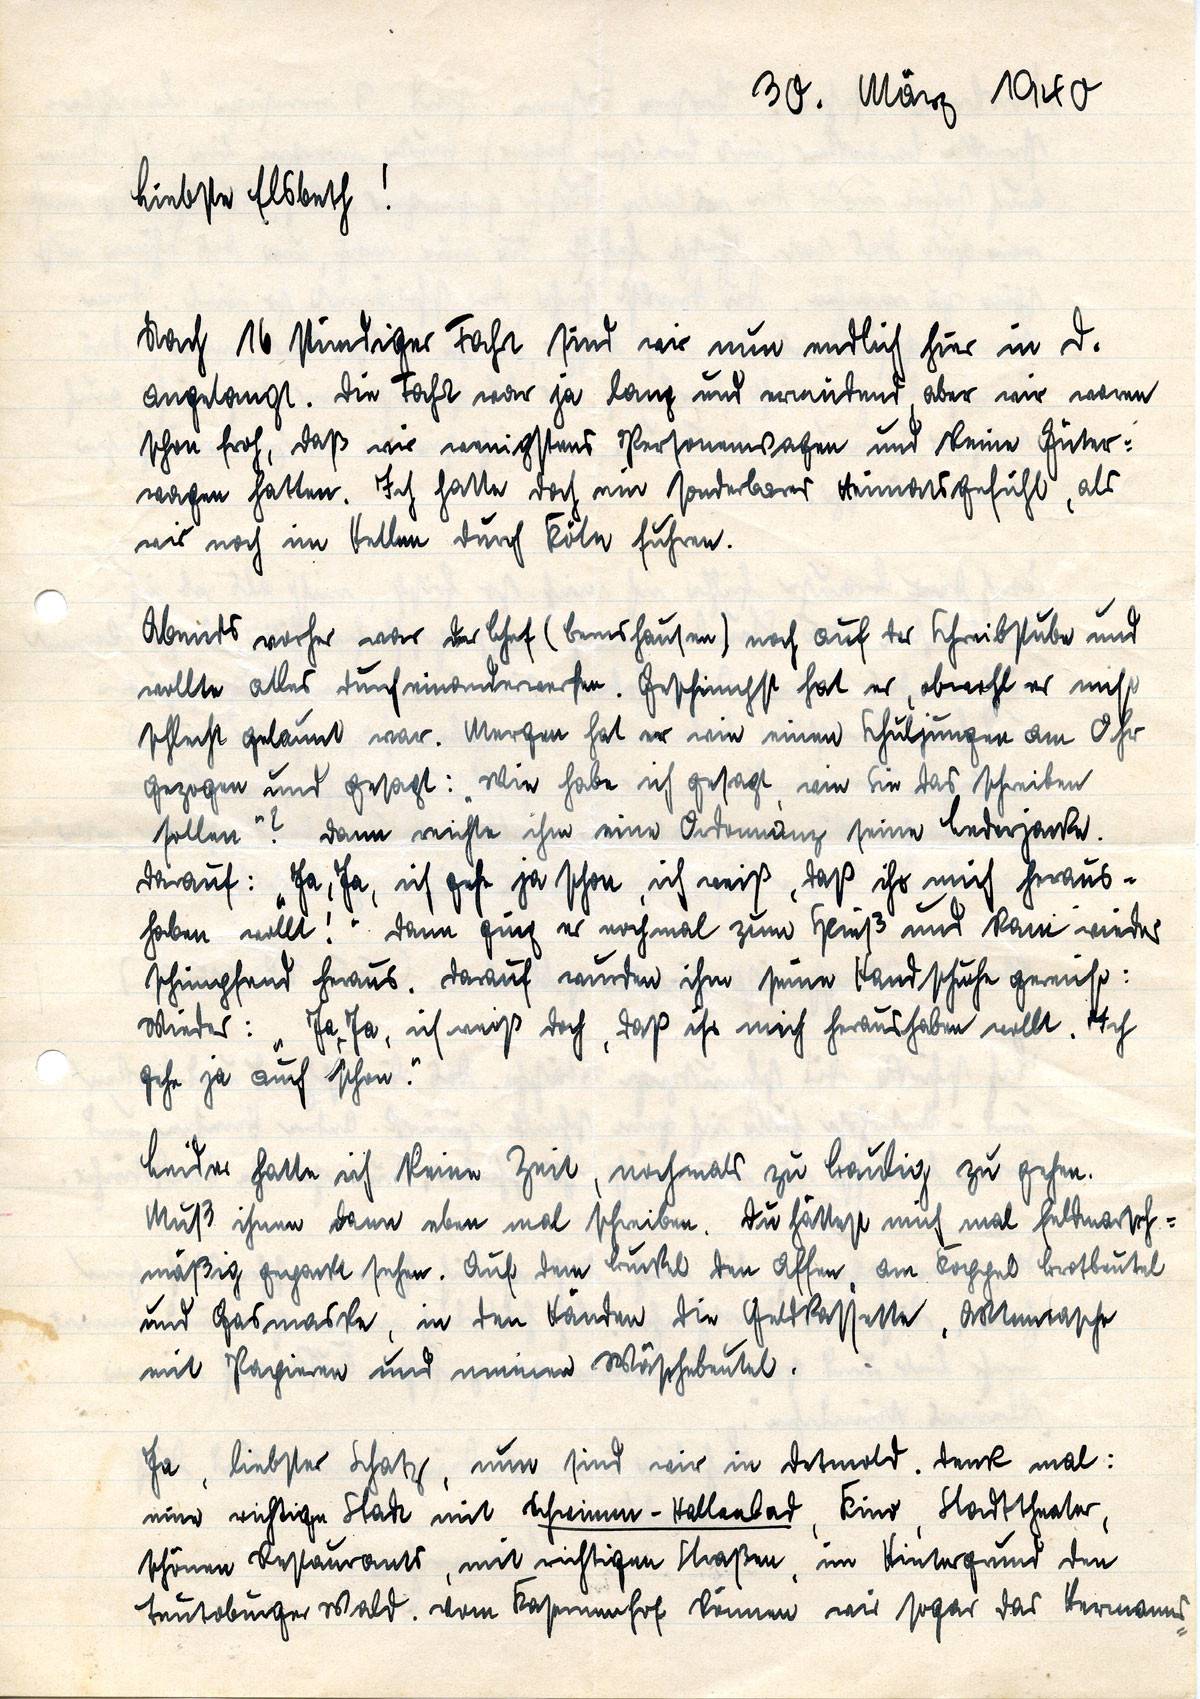 30. März 1940
Liebste Elsbeth!
Nach 16 stündiger Fahrt sind wir nun endlich hier in D.
angelangt. Die Fahrt war ja lang und ermüdend, aber wir waren
schon froh, daß wir wenigstens Personenwagen und keine Güter=
wagen hatten. Ich hatte doch ein sonderbares Heimatsgefühl, als
wir noch im Hellen durch Köln fuhren.
Abends vorher war der Chef (Bemshausen) noch auf der Schreibstube und
wollte alles durcheinanderwerfen. Geschimpft hat er, obwohl er nicht
schlecht gelaunt war. Mergen hat er wie einen Schuljungen am Ohr
gezogen und gesagt: „Wie habe ich gesagt, wie Sie das schreiben
sollen"? Dann reichte ihm eine Ordonnanz seine Lederjacke.
Darauf: „Ja, Ja, ich gehe ja schon, ich weiß, daß ihr mich heraus-
haben wollt!" Dann ging er nochmal zum Spieß und kam wieder
schimpfend heraus. Darauf wurden ihm seine Handschuhe gereicht:
Wieder: „Ja, Ja, ich weiß doch, daß ihr mich heraushaben wollt. Ich
gehe ja auch schon."
Leider hatte ich keine Zeit, nochmals zu zu gehen.
Muß ihnen dann eben mal schreiben. Du hättest mich mal feldmarsch=
mäßig gepackt sehen. Auf dem Buckel den Affen, am Koppel Brotbeutel
und Gasmaske, in den Händen die Geldkassette, Aktentasche
mit Papieren und meinen Wäschebeutel.
Ja, liebster Schatz, nun sind wir in Detmold. Denk mal:
eine richtige Stadt mit Schwimm-Hallenbad, Kino, Stadttheater,
schönen Restaurants, mit richtigen Straßen, im Hintergrund den
Teutoburger Wald. Vom Kasernenhof können wir sogar das Hermanns=